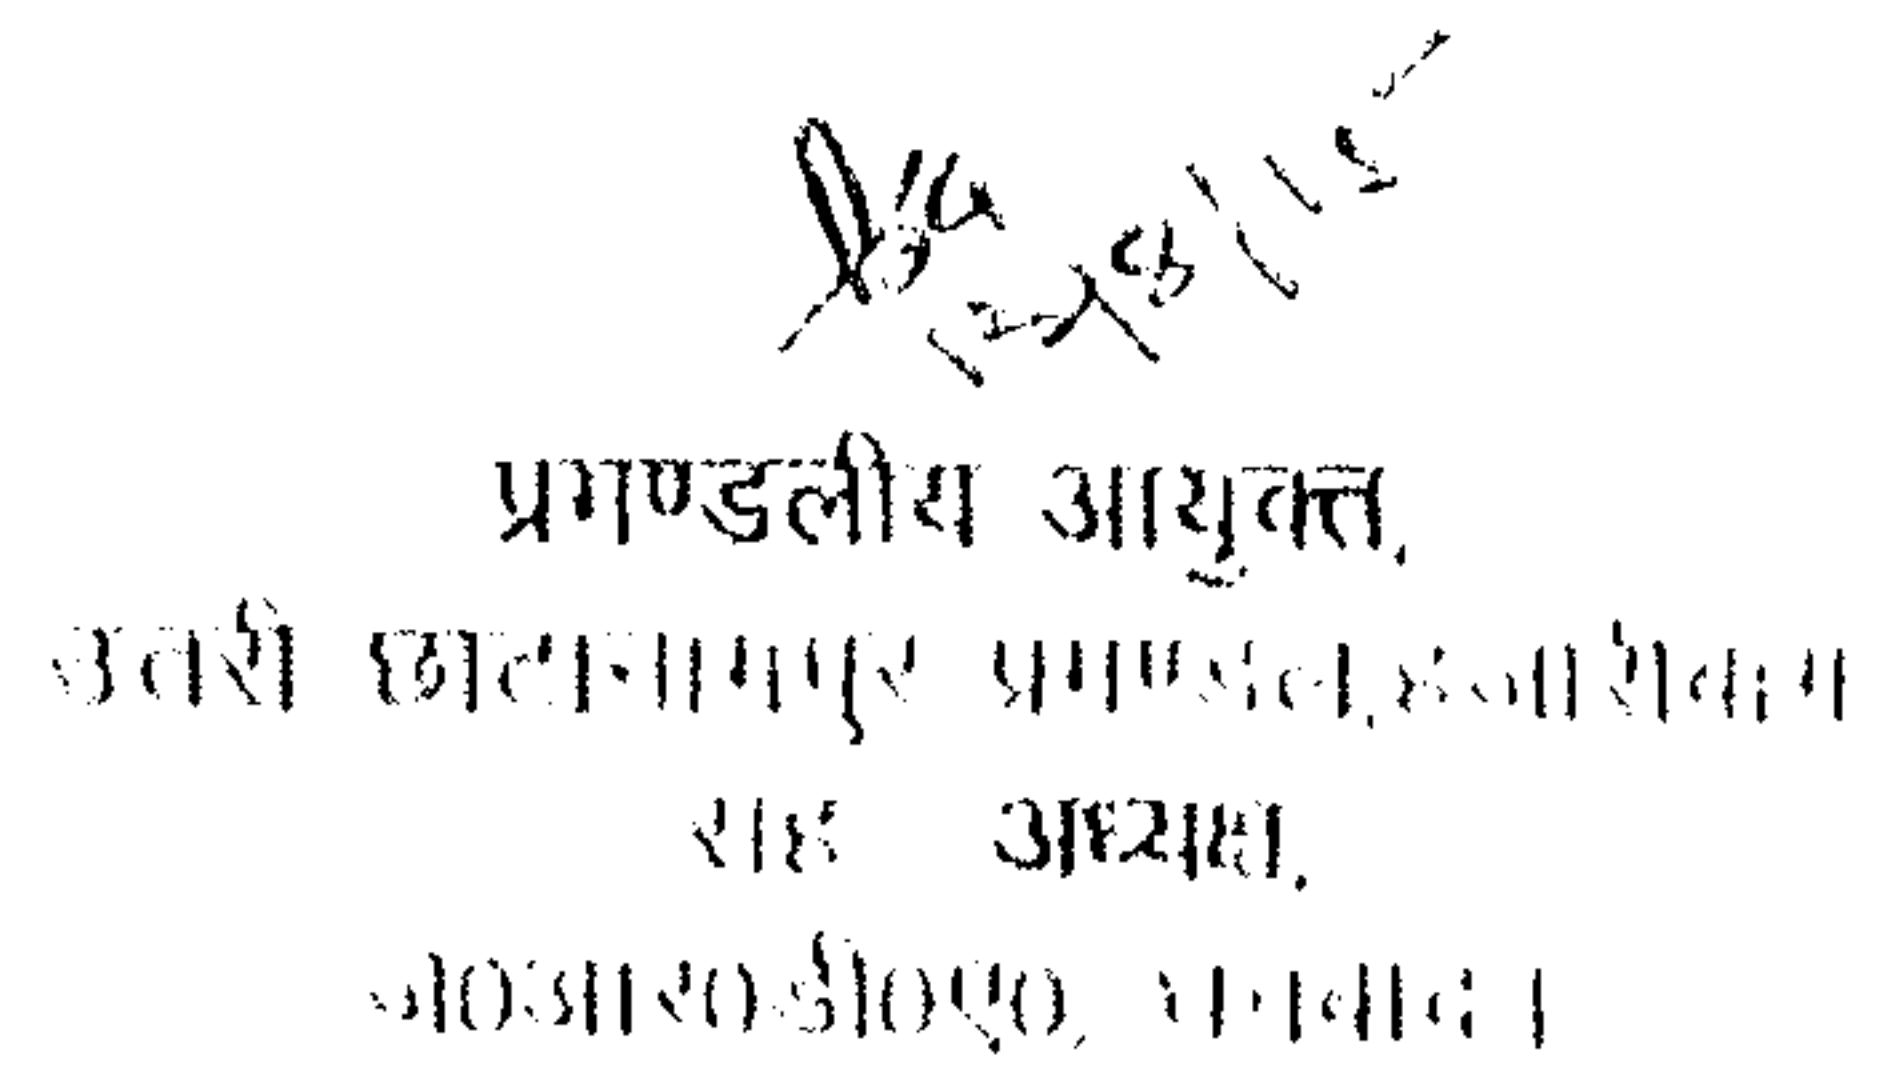 प्रमण्डलीय आयुक्त,
उतरी छोटानागपुर प्रमण्डल, हजारीबाग
सह अध्यक्ष,
जे०आर०डी०ए०, धनबाद ।